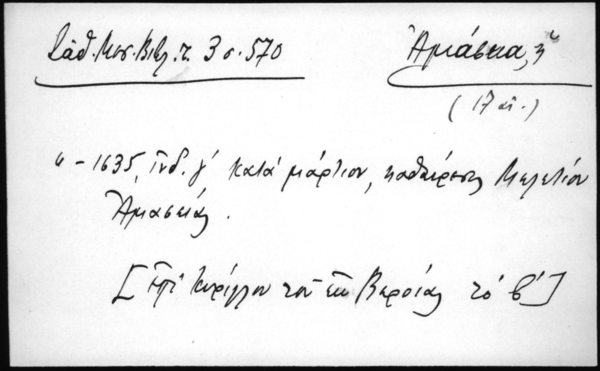 Σάθ. Μεσ. Βιβλ. τ. 3 σ. 570
Ἀμάσεια, ἡ
(17 αἰ.)
" – 1635, ἰνδ. γ' κατὰ μάρτιον, καθαίρεσις Μελετίου
Ἀμασείας.
[ἐπὶ Κυρίλλου τοῦ ἐκ Βεροίας τὸ β']